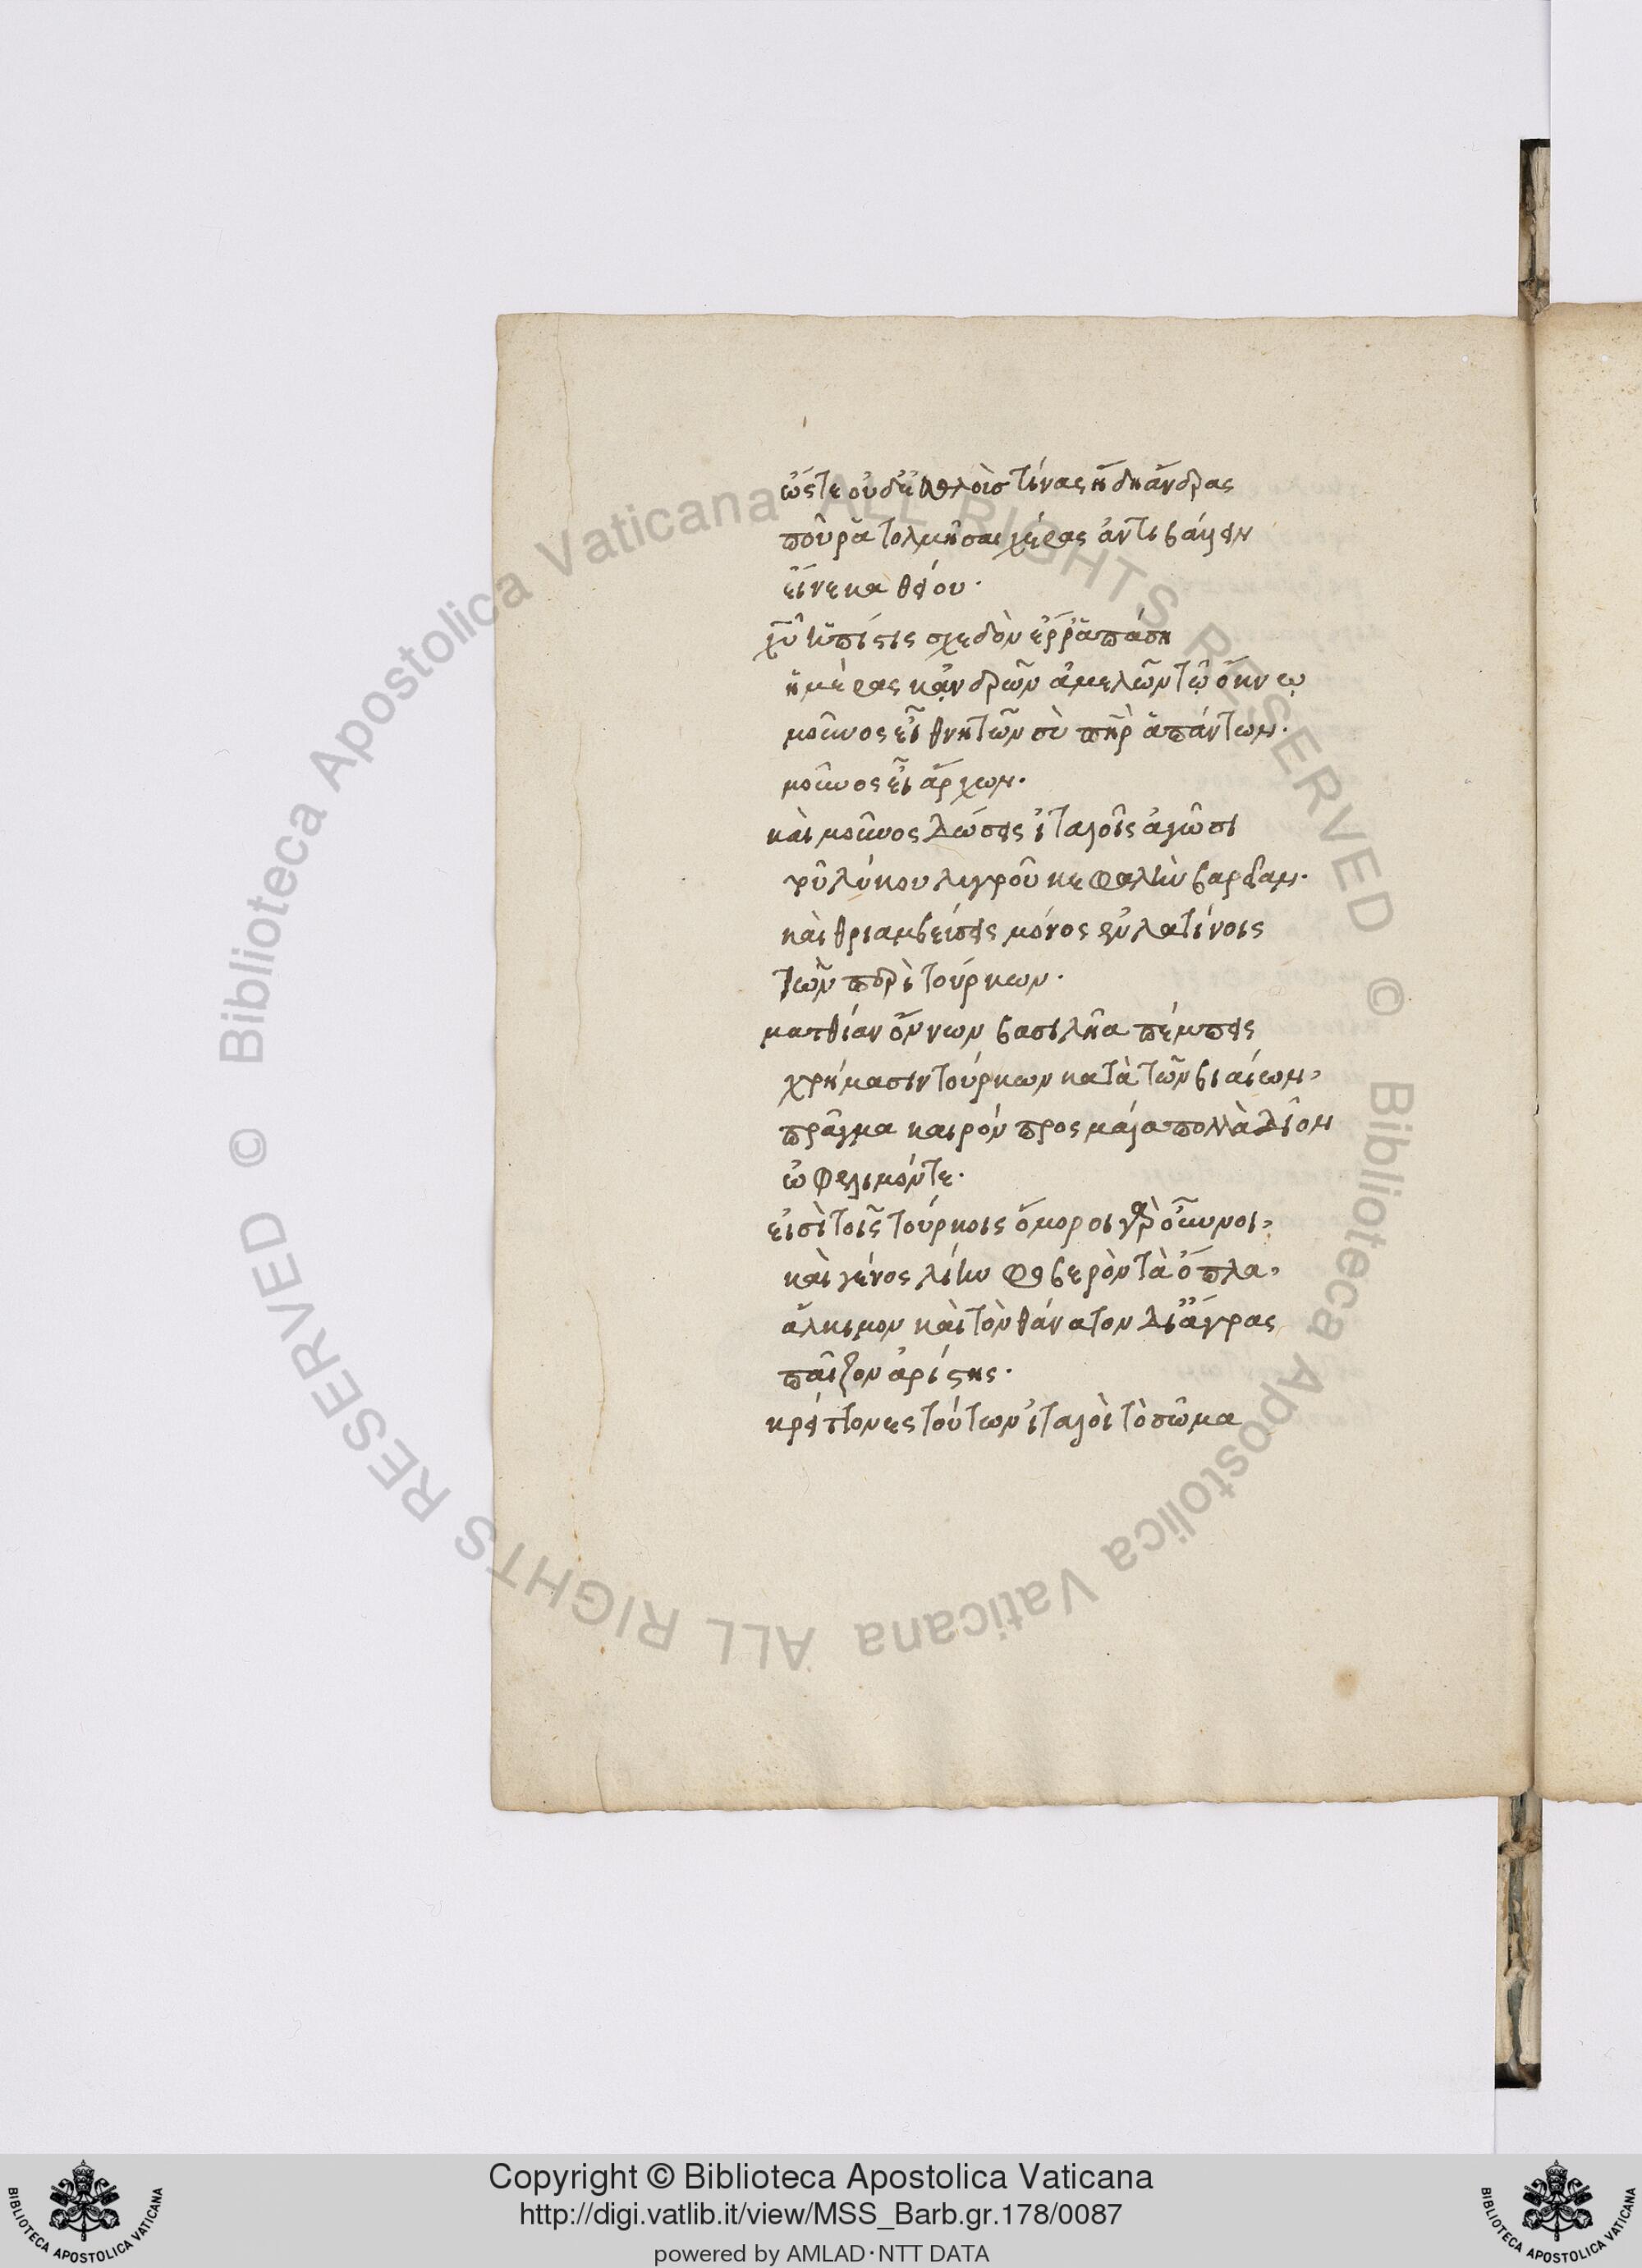 ὥστε οὐδ' ἐθέλοις τίνας ἤδη ἄνδρας
ποῦρα τολμῆσαι χέρας ἀντιβαίνειν
εἵνεκα θείου.
χῦ ἡ πίστις σχεδὸν ἔρρ' ἁπάση
ἡμέρας κἀνδρῶν ἀμελῶν τῷ ὄκνῳ
μοῦνος εἶ θνητῶν σὺ πὴρ ἁπάντων.
μοῦνος εἶ ἄρχων.
καὶ μοῦνος δώσεις ἰταλοῖς ἀγῶσι
τοῦ λύκου λυγροῦ κεφαλὴν βαρείαν.
καὶ θριαμβείσεις μόνος ἐν λατίνοις
τῶν περὶ τούρκων.
ματθίαν οὔννων βασιλῆα πέμπεις
χρήμασιν τούρκων κατὰ τῶν βιαίων,
πρᾶγμα καιρόν προς μάλα πολλὰ δῖον
ὠφέλιμόν τε.
εἰσὶ τοῖς τούρκοις ὅμοροι γὰρ οὖννοι,
καὶ γένος λίην φοβερὸν τὰ ὅπλα,
ἄλκιμον καὶ τὸν θάνατον δι' ἄγρας
παῖζον ἀρίστης.
κρείττονες τούτων ἰταλοὶ τὸ σῶμα
Copyright © Biblioteca Apostolica Vaticana
http://digi.vatlib.it/view/MSS_Barb.gr.178/0087
powered by AMLAD·NTT DATA
BIBLIOTECA APOSTOLICA VATICANA
BIBLIOTECA APOSTOLICA VATICANA
© Biblioteca Apostolica Vaticana ALL RIGHTS RESERVED
© Biblioteca Apostolica Vaticana ALL RIGHTS RESERVED